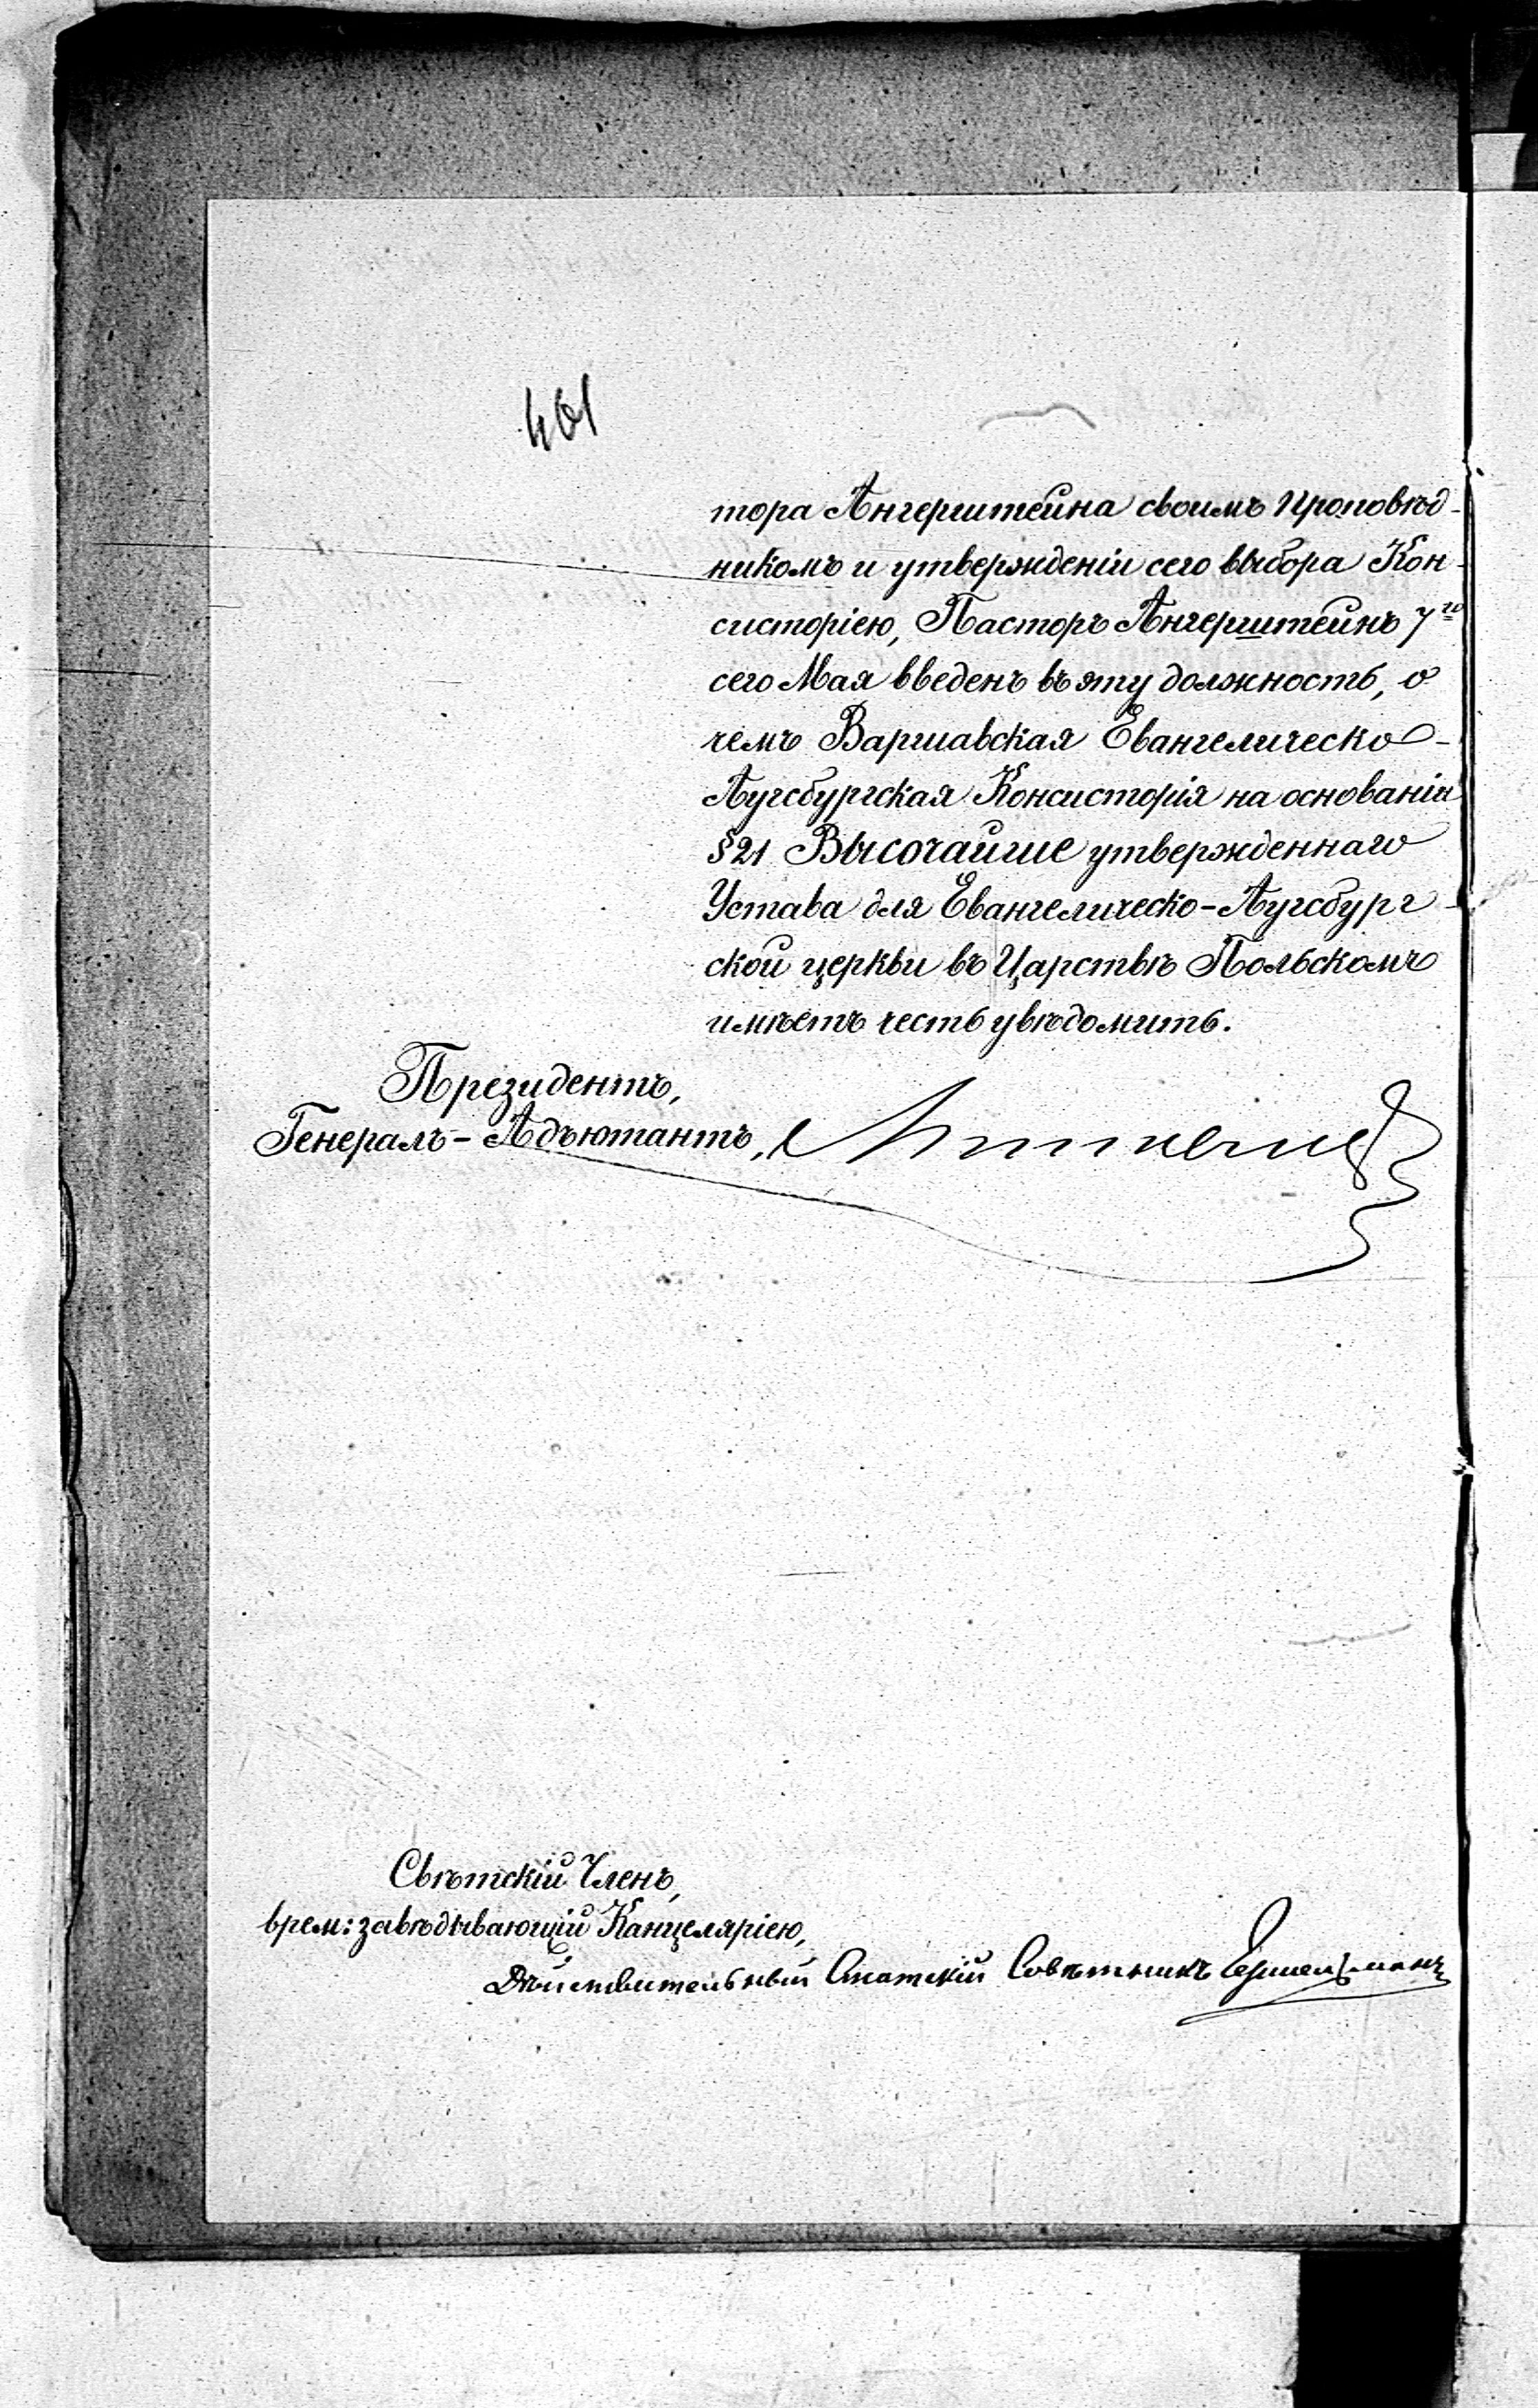 401
тора Ангерштейна своимъ Проповѣд-
никомъ и утвержденіи сего выбора Кон-
систоріею, Пасторъ Ангерштейнъ 7го
сего Мая введенъ въ эту должность, о
чемъ Варшавская Евангелическо-
Аугсбургская Консисторія на основаніи
§ 21 Высочайше утвержденнаго
Устава для Евангелическо-Аугсбург-
ской церкви въ Царствѣ Польскомъ
имѣетъ честь увѣдомить.
Президентъ,
Генералъ-Адъютантъ,
Свѣтскій Членъ,
врем: завѣдывающій Канцеляріею,
Дѣйствительный Статскій Совѣтникъ